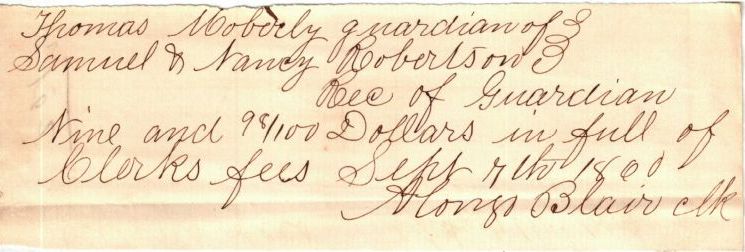 Thomas Moberly guardian of }
Samuel & Nancy Robertson }
Rec of Guardian
Nine and 98/100 Dollars in full of
Clerks fees Sept 7th 1860
Alonzo Blair clk